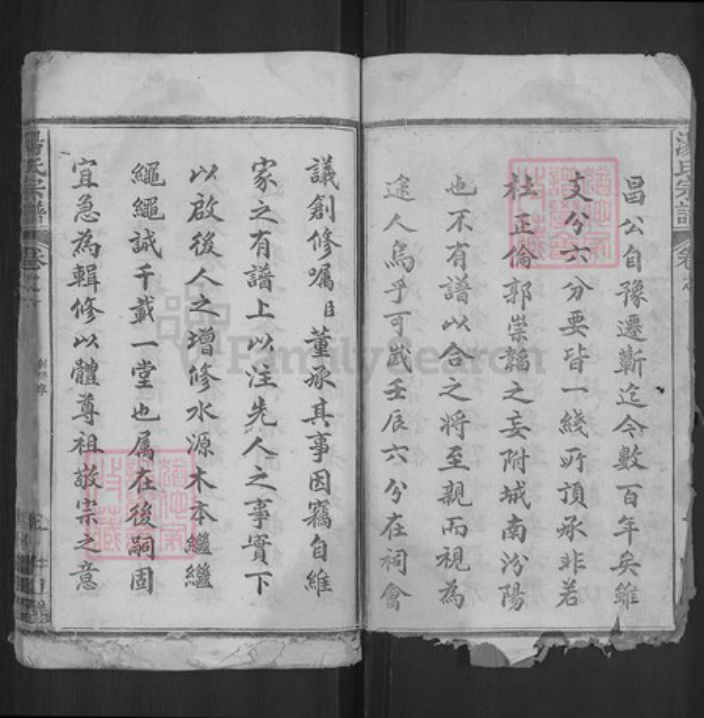 昌公自豫遷蘄迄今數百年矣雖
支分六分要皆一綫所頂承非若
杜正倫郭崇韜之妄附城南汾陽
也不有譜以合之将至親而視為
途人烏乎可哉壬辰六分在祠會
議創修囑 董承其事因竊自維
家之有譜上以注先人之事實下
以啟後人之增修水源木本繼繼
繩繩誠千載一堂也属在後嗣固
宜急為輯修以體尊祖敬宗之意
湯氏宗譜
湯氏宗譜
FamilySearch